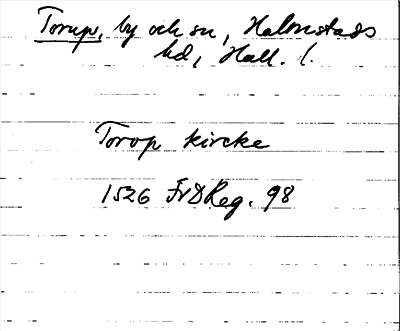 Torup, by och sn, Halmstads
hd, Hall. l.
Torop kircke
1526 FrDReg. 98